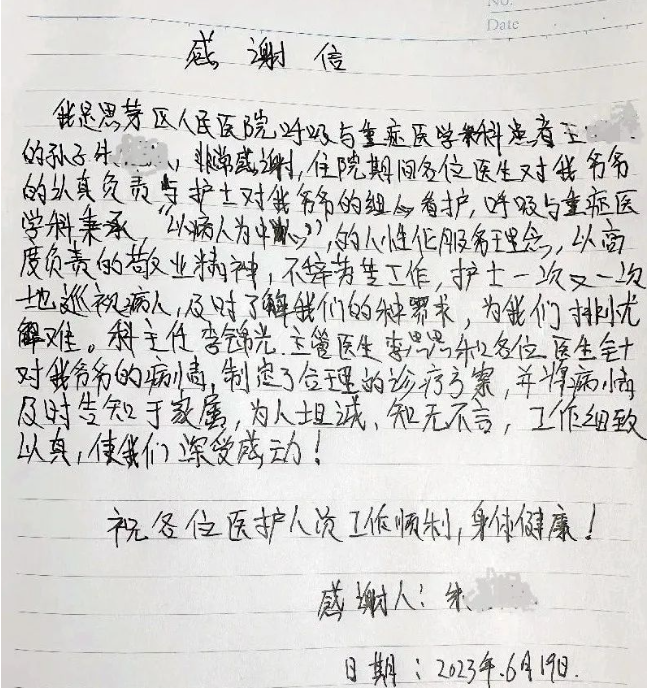 No.
Date
感谢信
我是思茅区人民医院呼吸与重症医学科患者王
的孙子朱、非常感谢,住院期间各位医生对我爷爷
的认真负责与护士对我爷爷的细心看护,呼吸与重症医
学科秉承“以病人为中心”,的人性化服务理念,以高
度负责的敬业精神,不辞劳苦工作,护士一次又一次
地巡视病人,及时了解我们的种需求,为我们排忧
解难。科主任李锦光、主管医生李思思和各位医生针
对我爷爷的病情,制定了合理的诊疗方案,并将病情
及时告知于家属,为人坦诚、知无不言,工作细致
认真,使我们深受感动!
祝各位医护人员工作顺利,身体健康!
感谢人:朱
日期:2023年.6月19日.